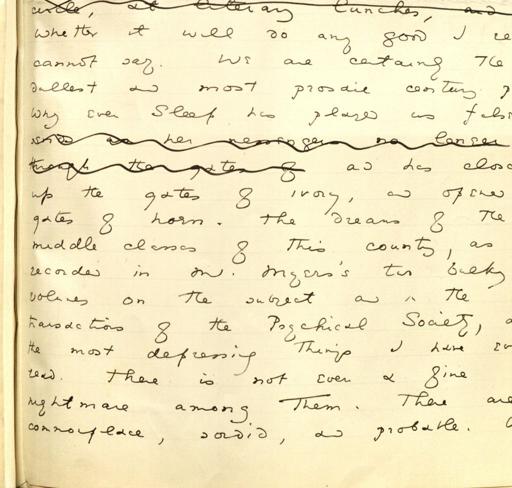 circle, at literary lunches, and
whether it will do any good I
cannot say. We are certainly the
dullest and most prosaic century
Why even Sleep has played us false
send us her messengers no longer
through the gates of and has closed
up the gates of ivory, and opened
gates of horn. The dreams of the
middle classes of this country, as
recorded in Mr. Myers's two bulky
volumes on the subject and in the
transactions of the Psychical Society,
the most depressing things I have ever
read. There is not even a fine
nightmare among them. They are
commonplace, sordid, and probable.